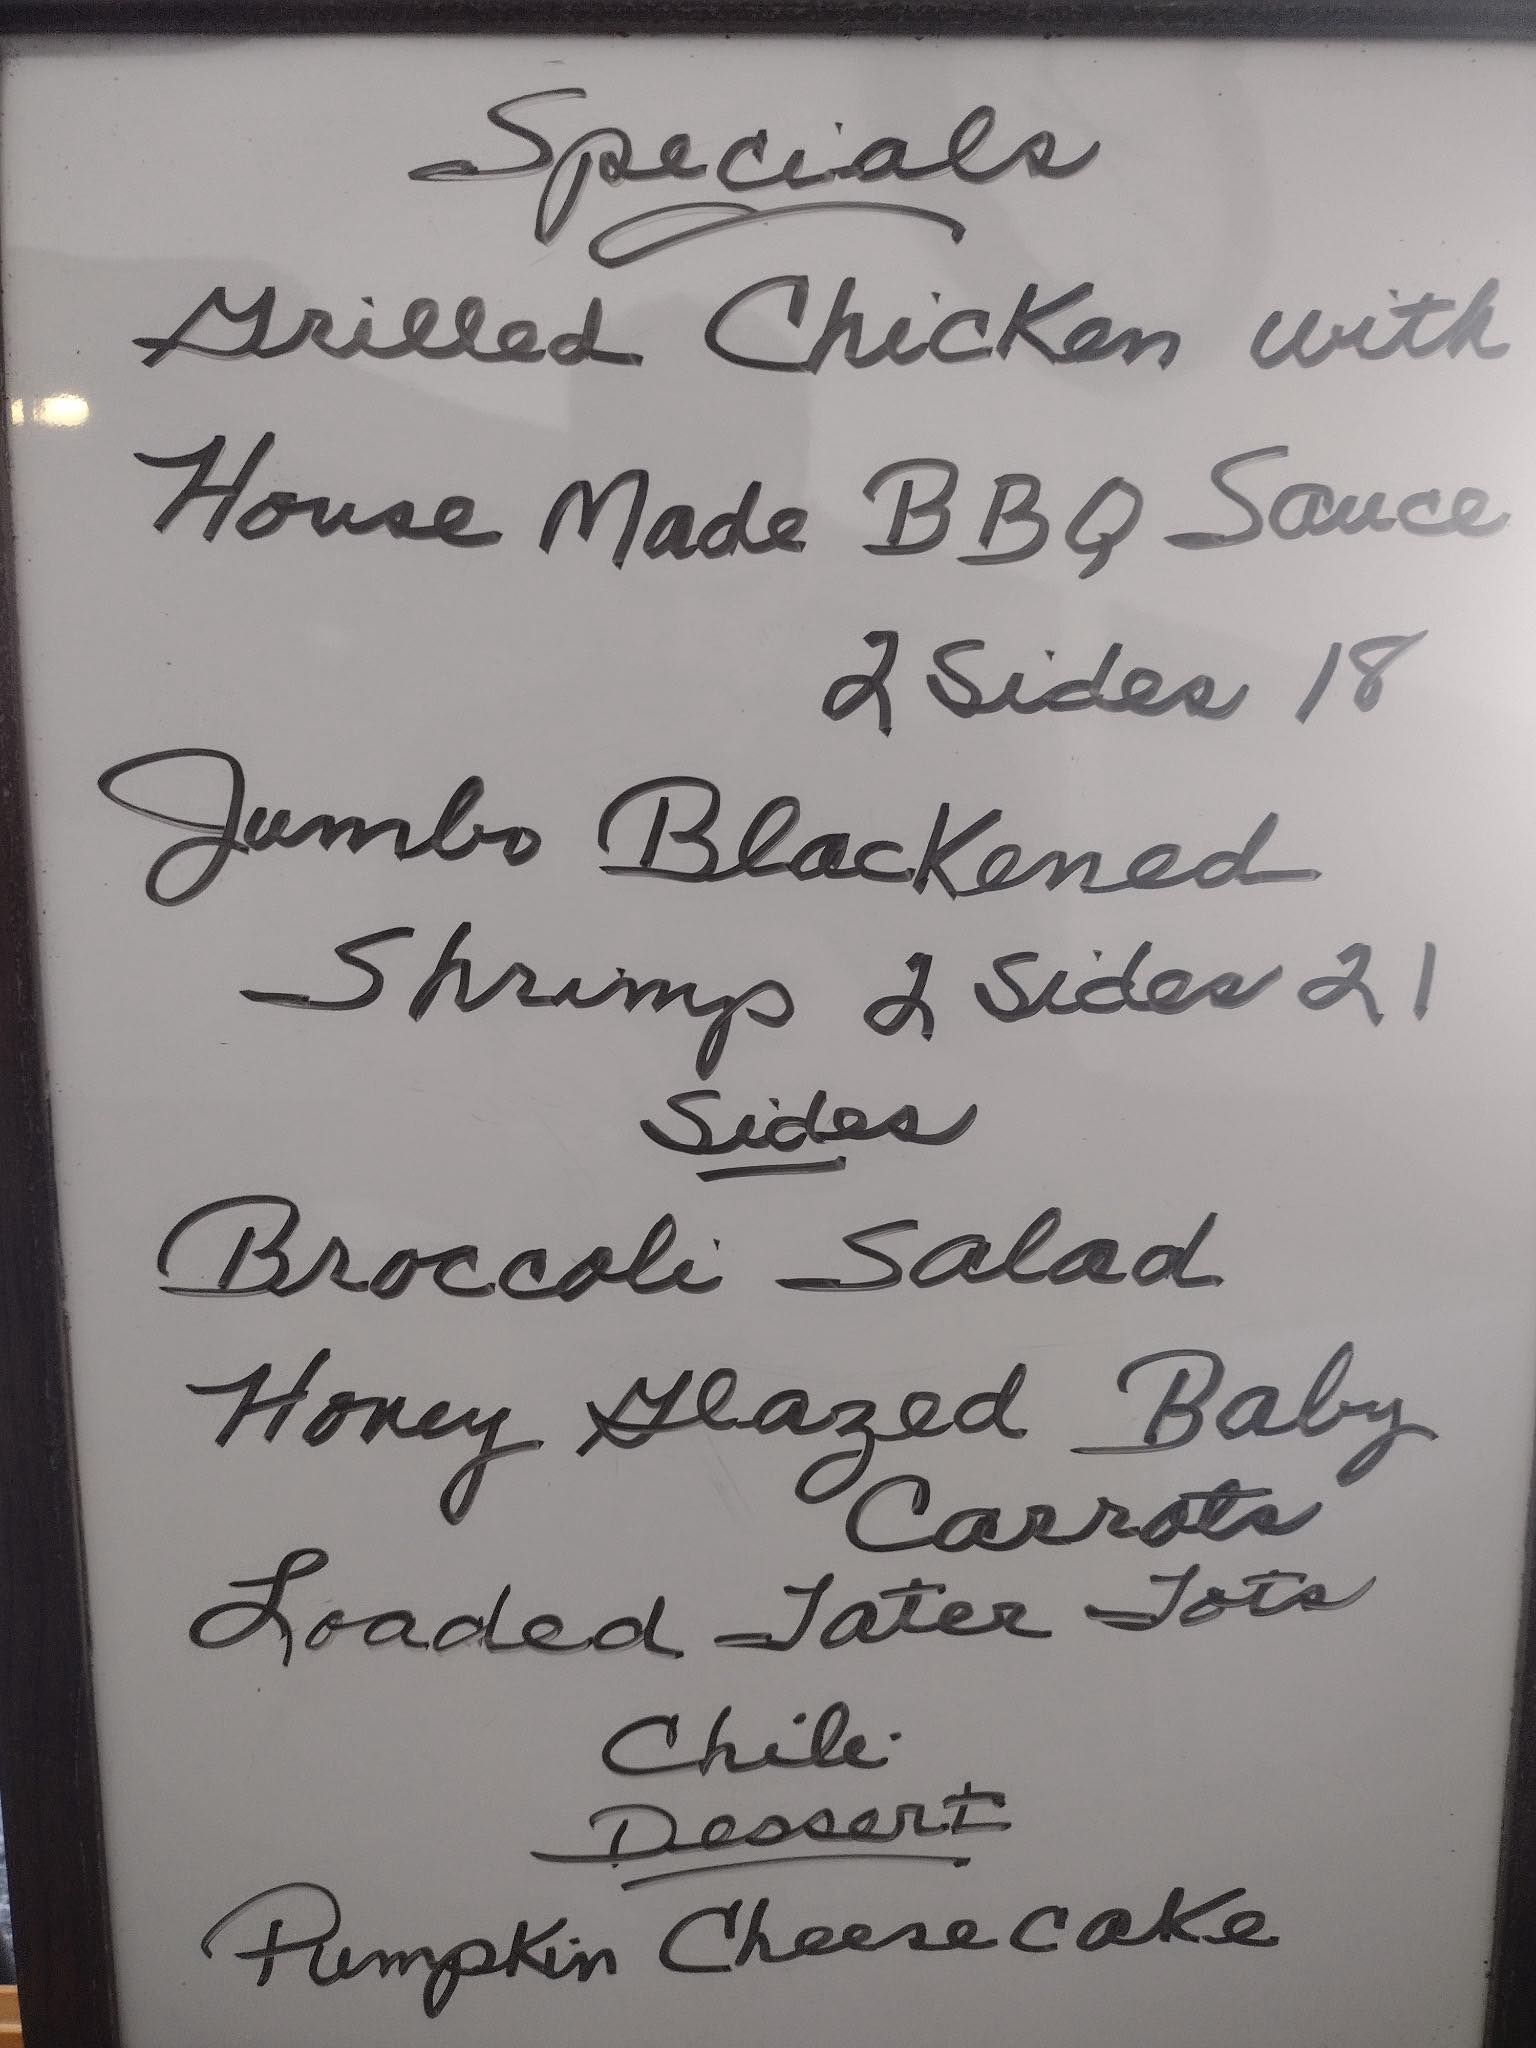 Specials
Grilled Chicken with
House Made BBQ Sauce
2 Sides 18
Jumbo Blackened
Shrimp 2 Sides 21
Sides
Broccoli Salad
Honey Glazed Baby
Carrots
Loaded Tater Tots
Chili
Dessert
Pumpkin Cheesecake